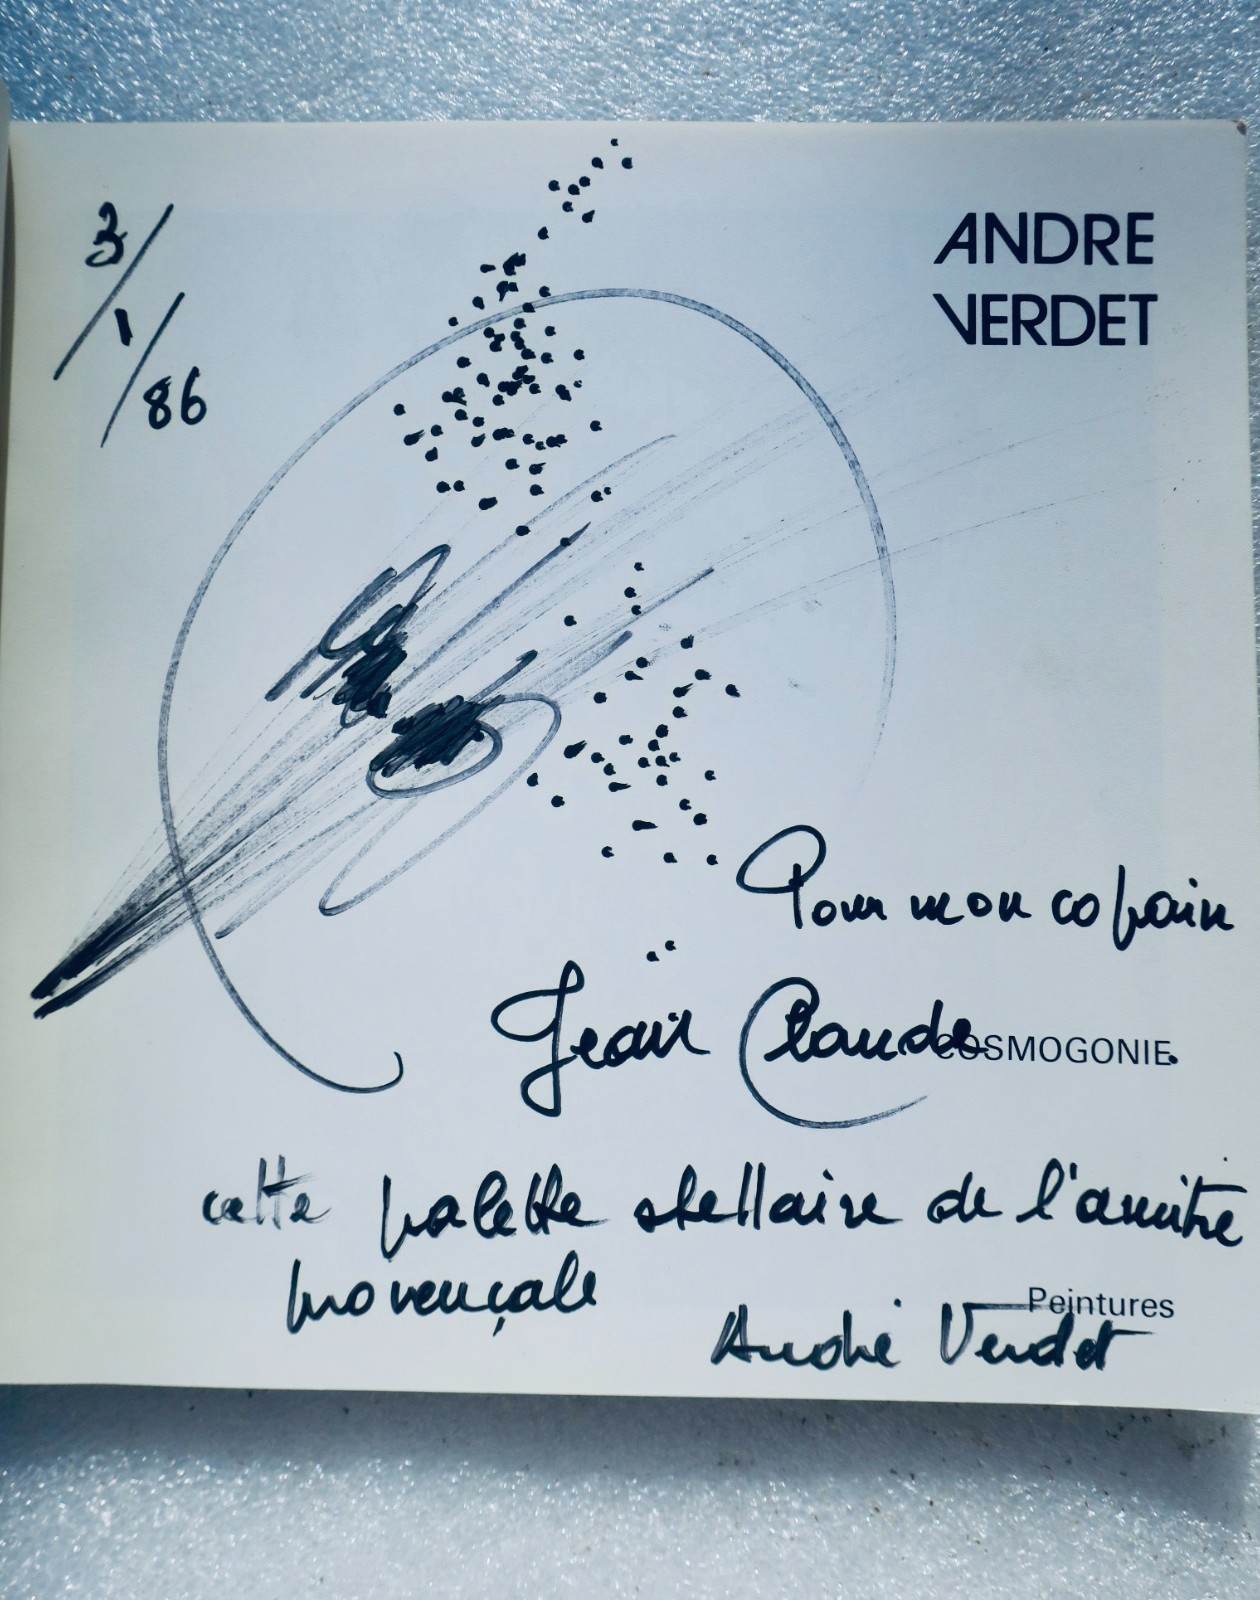 3/1/86
ANDRE
VERDET
Pour mon copain
Jean Claude
COSMOGONIE.
cette palette stellaire de l'amitié
provençale
Peintures
André Verdet